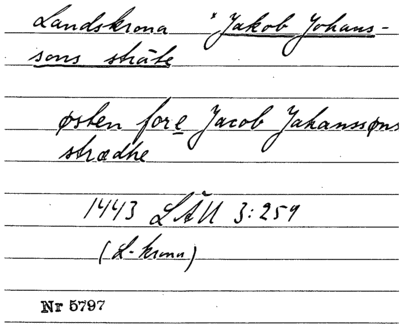 Landskrona * Jakob Johans-
sons stræte
østen fore Jacob Jahanssøns
strædhe
1443 LÄU 3:259
(L-krona)
Nr 5797